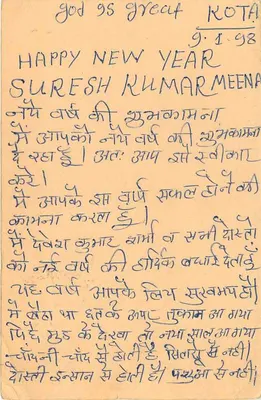 god is great KOTA
9.1.98
HAPPY NEW YEAR
SURESH KUMAR MEENA
नये वर्ष की शुभकामना
मैं आपको नये वर्ष की शुभकामना
दे रहा हूँ। अतः आप इसे स्वीकार
करे।
मैं आपके इस वर्ष सफल होने की
कामना करता हूँ।
मैं देवेश कुमार शर्मा व सनी दोस्तो
को नई वर्ष की हार्दिक बधाई देता हूँ
यह वर्ष आपके लिए सुखमय हो।
मैं बैठा था छत के ऊपर तुफान आ गया
पिछे मुड़ के देखा तो नया साल आ गया
चाँदनी चाँद से होती है, सितारों से नही।
दोस्ती इन्सान से होती है। पशुओ से नही।